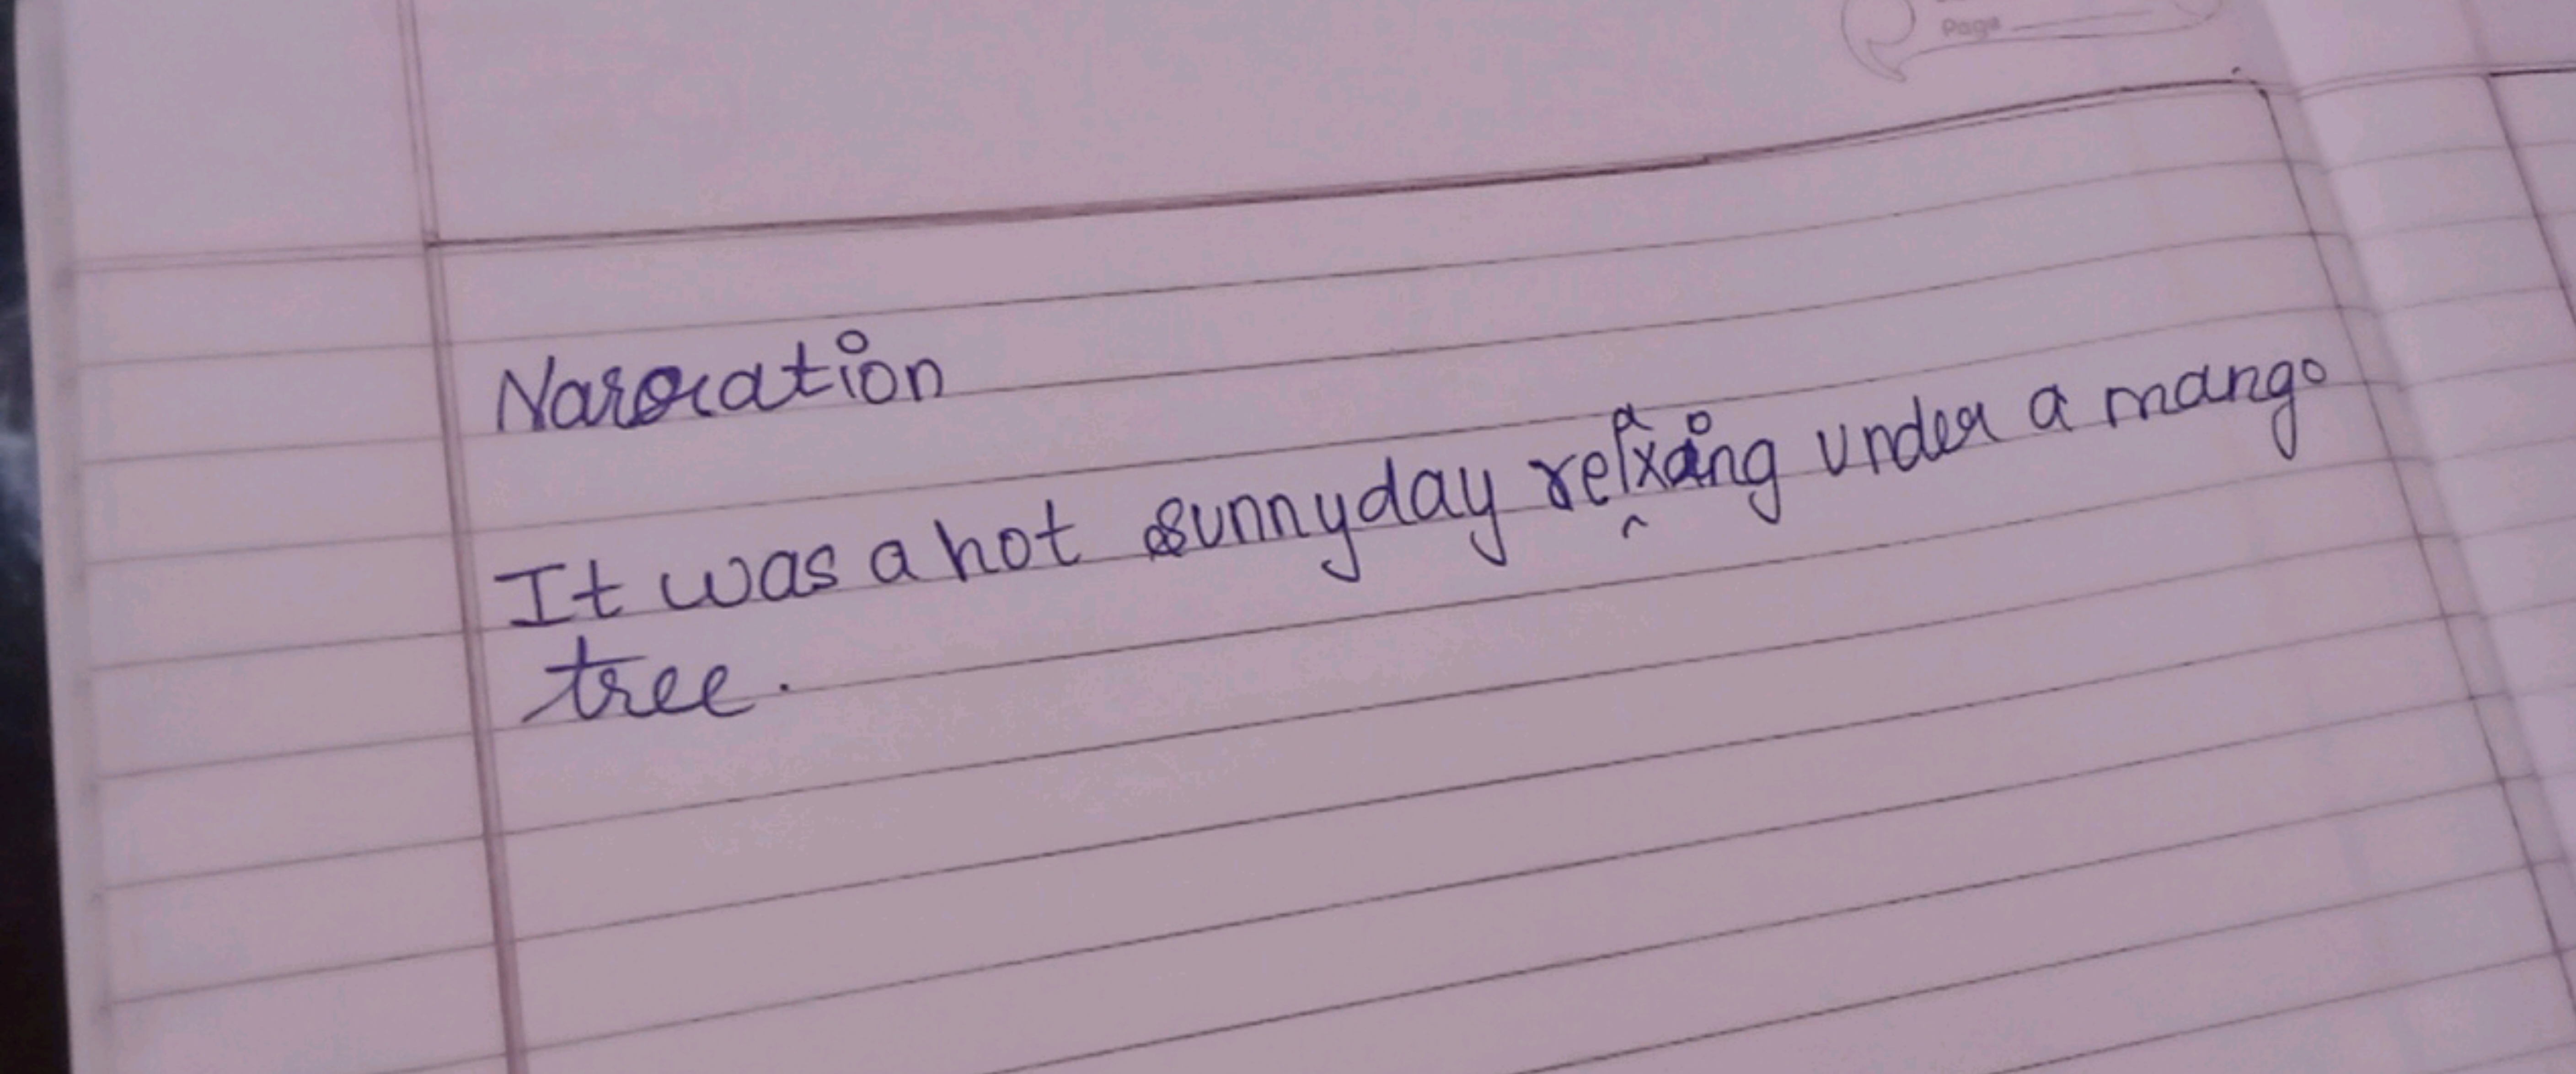 Page
Narration
It was a hot sunnyday relaxing under a mango
tree.